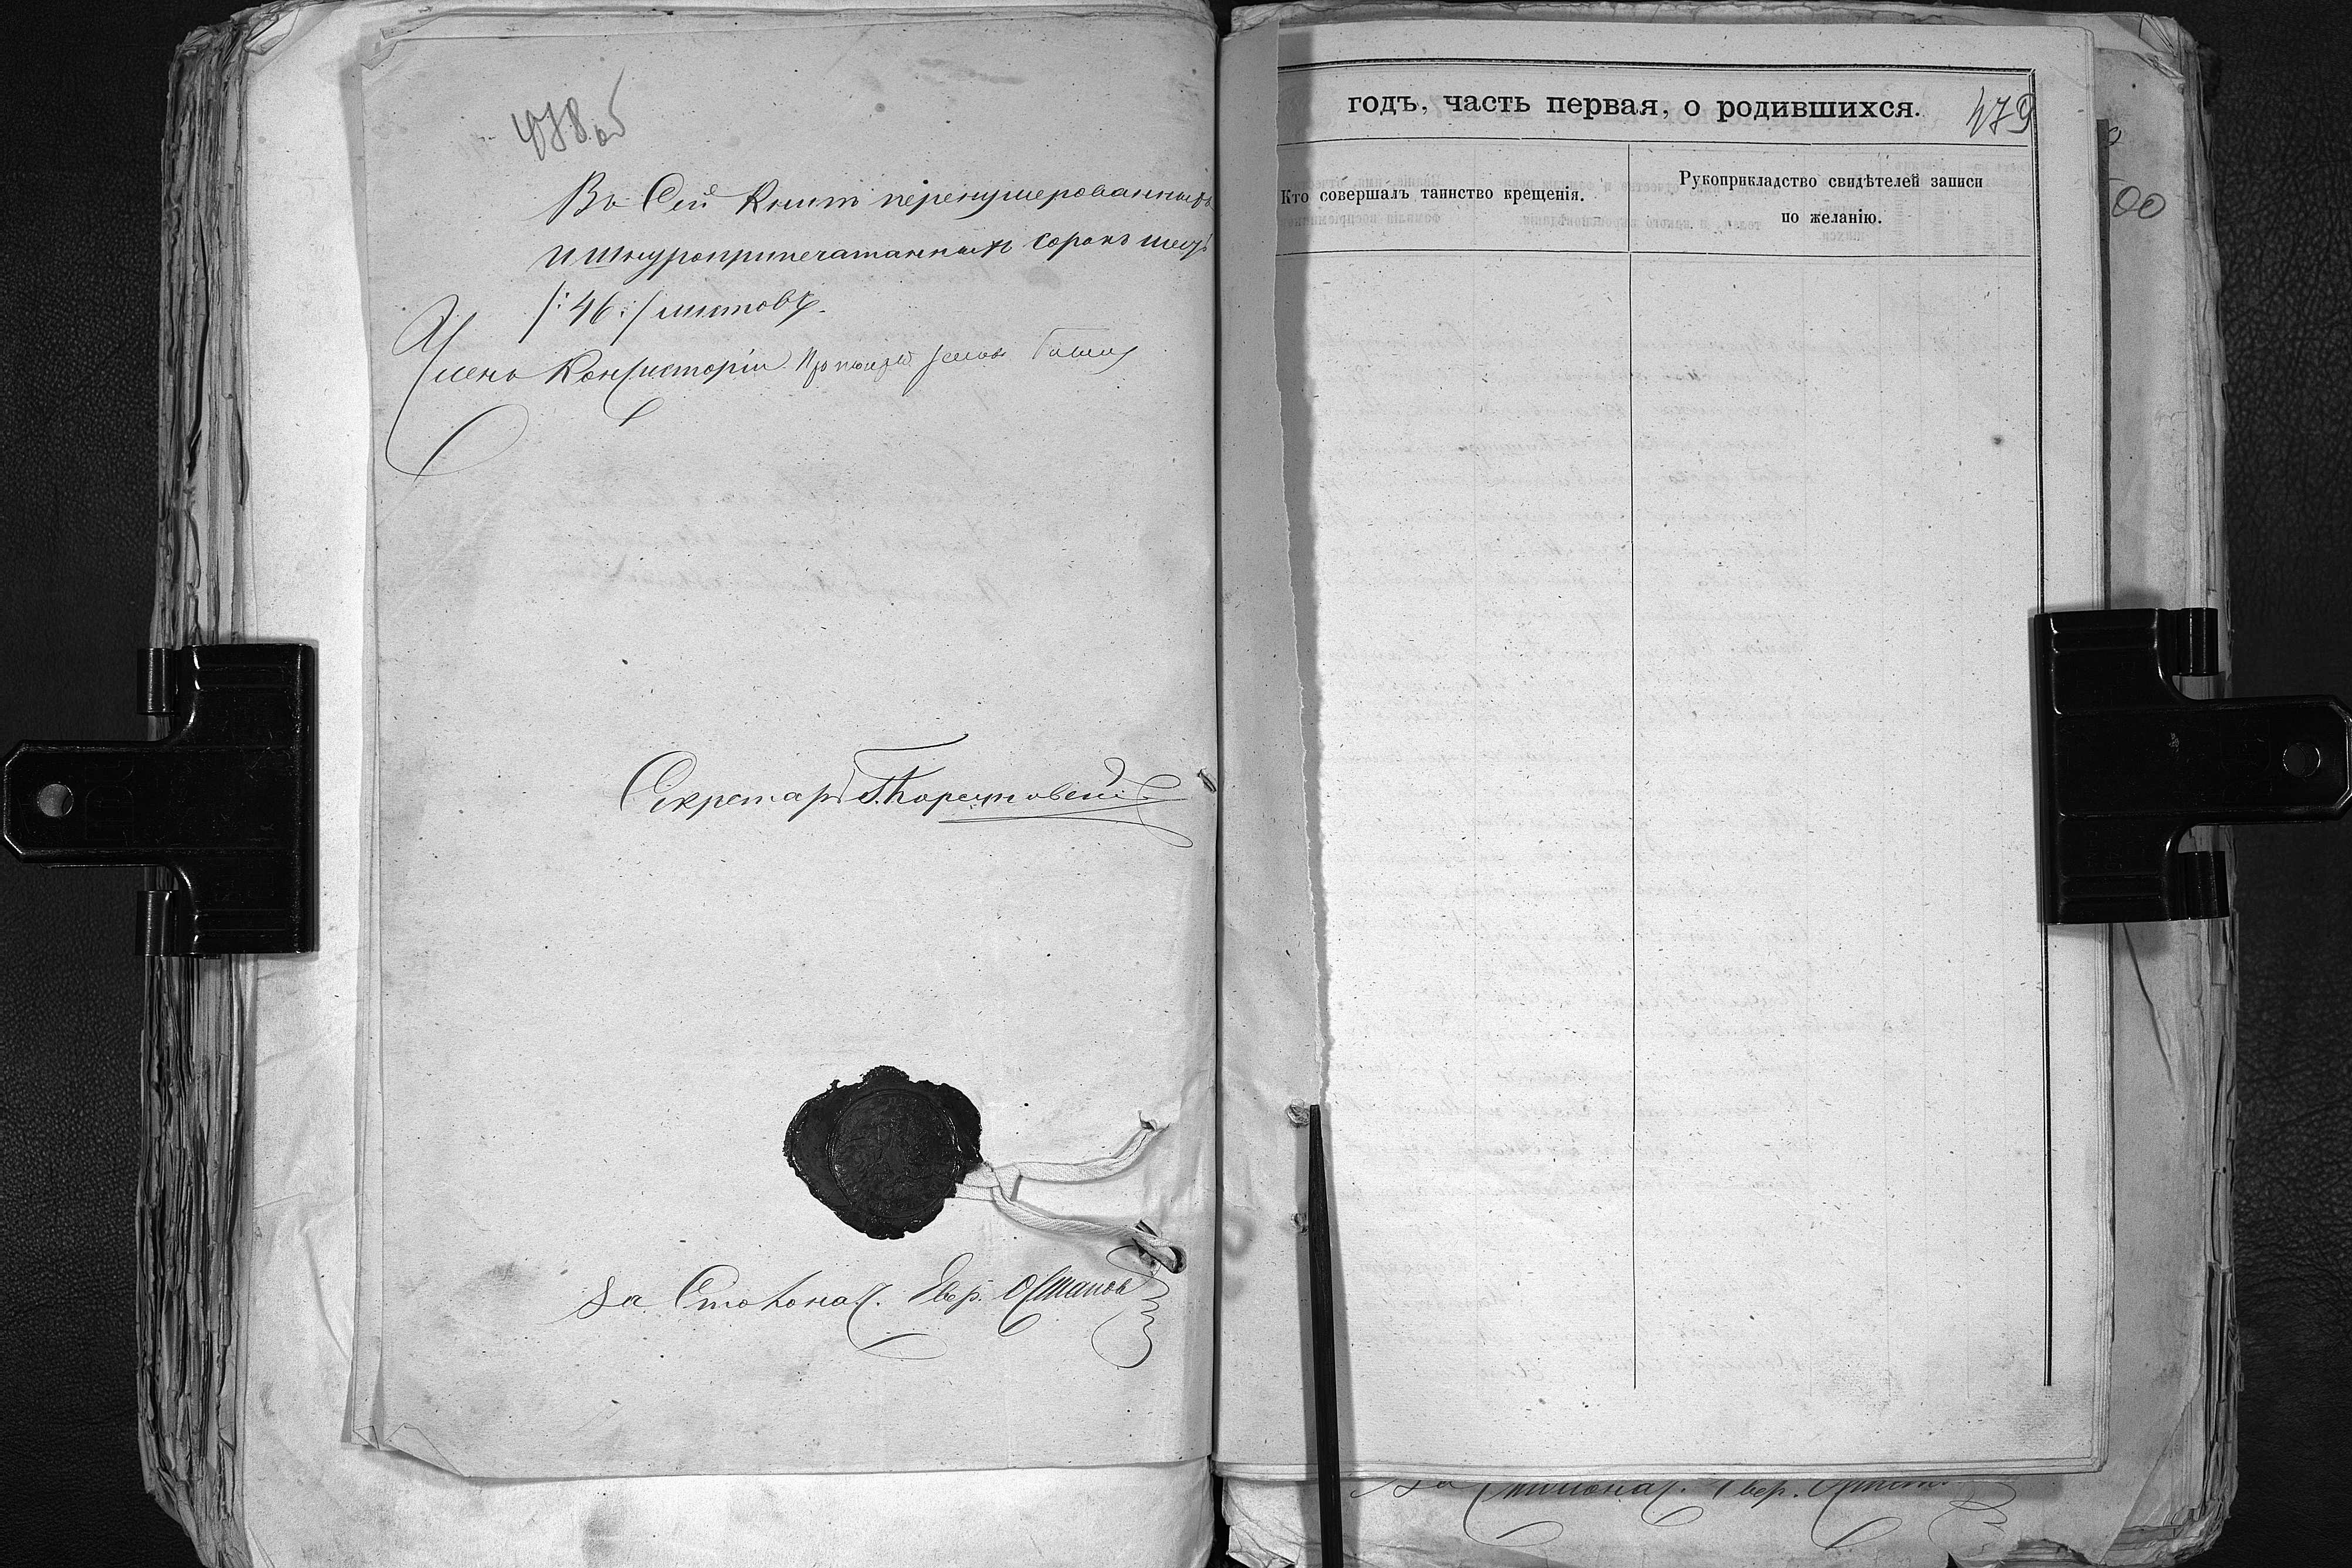 478 об
Въ Сей Книгѣ перенумерованныхъ
и шнуроприпечатанныхъ сорокъ шесть
/:46:/ листовъ.
Членъ Консисторіи
Секретарь
За Столонач.
годъ, часть первая, о родившихся.
479
Кто совершалъ таинство крещенія.
Рукоприкладство свидѣтелей записи
по желанію.
00
За Столонач.